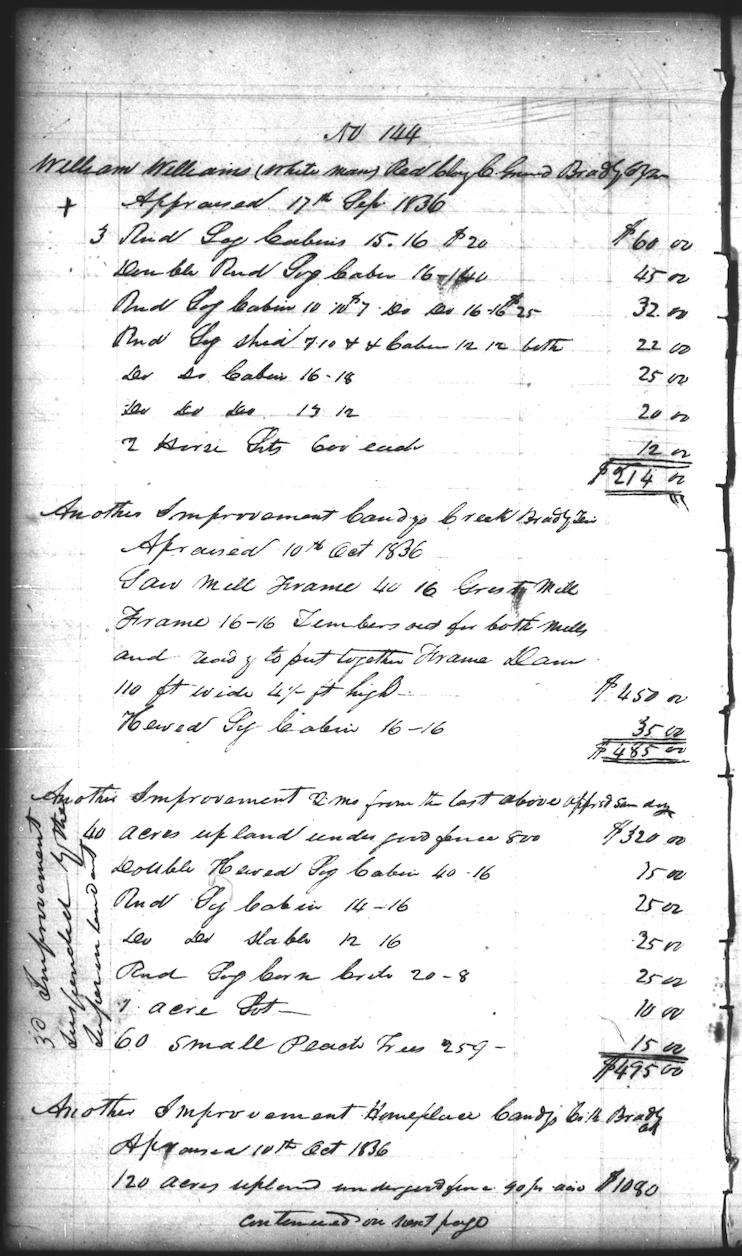 No 144
William Williams (White man) Red Clay C Ground Brady
+ Appraised 17th Sep 1836
3 Rnd Log Cabins 15.16 $20 $60 00
Double Rnd Log Cabin 16-14 40 45 00
Rnd Log Cabin 10 10 $7 Do Do 16-16 $25 32 00
Rnd Log shed 7 10 & Cabin 12 12 both 22 00
Do Do Cabin 16-18 25 00
Do Do Do 12 20 00
2 Horse Lots 600 each 12 00
$214 00
Another Improvement Candys Creek Brady Ten
Apraised 10th Oct 1836
Saw Mill Frame 40 16 Grist Mill
Frame 16-16 Timbers out for both Mills
and ready to put together Frame Dam
110 ft wide 4½ ft high $450 00
Hewed Log Cabin 16-16 35 00
$485 00
Another Improvement 2 ms from the last above appd same day
40 acres upland under good fence 800 $320 00
Double Hewed Log Cabin 40.16 75 00
Rnd Log Cabin 14-16 25 00
Do Do stable 12 16 25 00
Rnd Log Corn Crib 20-8 25 00
1 acre Lot 10 00
60 Small Peach Trees 25 15 00
$495 00
3d Improvement
suspended by the
Superintendant
Another Improvement Homeplace Candys Crk Brady
Apraised 10th Oct 1836
120 acres upland under good fence 90 pr acre $1080
continued on next page